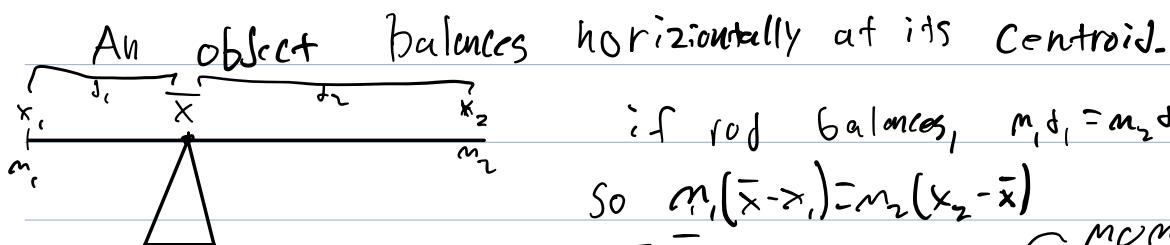 An object balances horiziontally at its centroid.
d₁ d₂
x₁ x̄ x₂
if rod balances, m₁d₁ = m₂d
m₁ m₂
So m₁(x̄-x₁)=m₂(x₂-x̄)